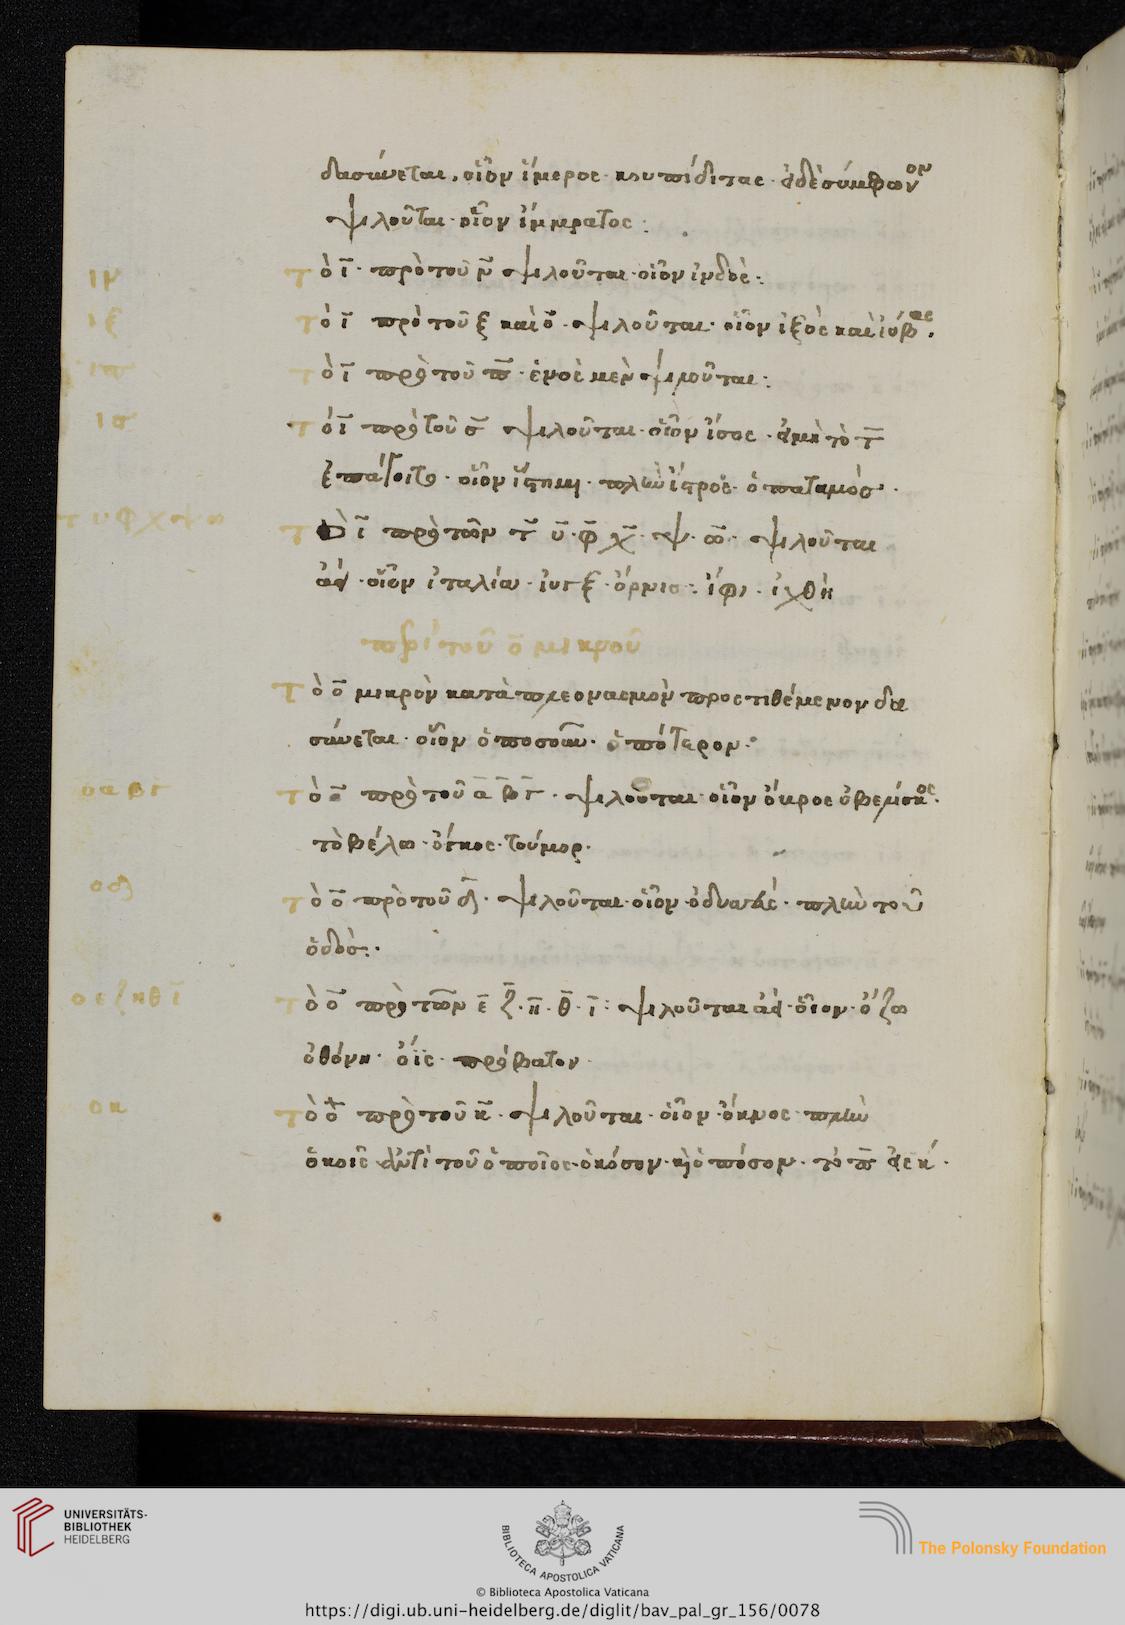 δασύνεται, οἷον ἵμερος κουπίδιτας εἰ δὲ σύμφωνον
ψιλοῦται οἷον ἴμμρατος:
ιν
τὸ ῑ πρὸ τοῦ ν̄ ψιλοῦται οἷον ἰνδός:
ιξ
τὸ ῑ πρὸ τοῦ ξ καὶ ο̄ ψιλοῦται οἷον ἰξὸς καὶ ἰόβας.
ιπ
τὸ ῑ πρὸ τοῦ π̄ ἑνὸς μὲν ψιλοῦται:
ισ
τὸ ῑ πρὸ τοῦ σ̄ ψιλοῦται οἷον ἴσος εἰ μὴ τὸ τ̄
ἐπάγοιτο οἷον ἵστημι πλὴν ἴστρος ὁ ποταμός.
τ υ φ χ ψ ω
τὸ ῑ πρὸ τῶν τ̄ ῡ φ̄ χ̄ ψ ω̄ ψιλοῦται
ἀεί οἷον ἰταλία ἰυγξ ὄρνις: ἶφι ἰχθὺ
περὶ τοῦ ο̄ μικροῦ
τὸ ο̄ μικρὸν κατὰ πλεονασμὸν προστιθέμενον δα
σύνεται οἷον ὁποσοῦν ὁπότερον.
ο α β γ
τὸ ο̄ πρὸ τοῦ ᾱ β̄ γ̄ ψιλοῦται οἷον ὄαρος ὀβελίσκος.
τὸ βέλω ὄγκος τούμορ.
ο δ
τὸ ο̄ πρὸ τοῦ δ̄ ψιλοῦται οἷον ὀδύνη πλὴν τοῦ
ὁδός.
ο ε ζ η θ ῑ
τὸ ο̄ πρὸ τῶν ε̄ ζ̄ η̄ θ̄ ῑ: ψιλοῦται ἀεί οἷον ὄζω
ὀθόνη ὄϊς πρόβατον.
ο κ
τὸ ο̄ πρὸ τοῦ κ̄ ψιλοῦται οἷον ὄκνος πλὴν
ὁκοῖς ἀντὶ τοῦ ὁποῖος ὁκόσον καὶ ὁπόσον τὸ π̄ εἰς κ.
UNIVERSITÄTS-
BIBLIOTHEK
HEIDELBERG
BIBLIOTECA APOSTOLICA VATICANA
The Polonsky Foundation
© Biblioteca Apostolica Vaticana
https://digi.ub.uni-heidelberg.de/diglit/bav_pal_gr_156/0078